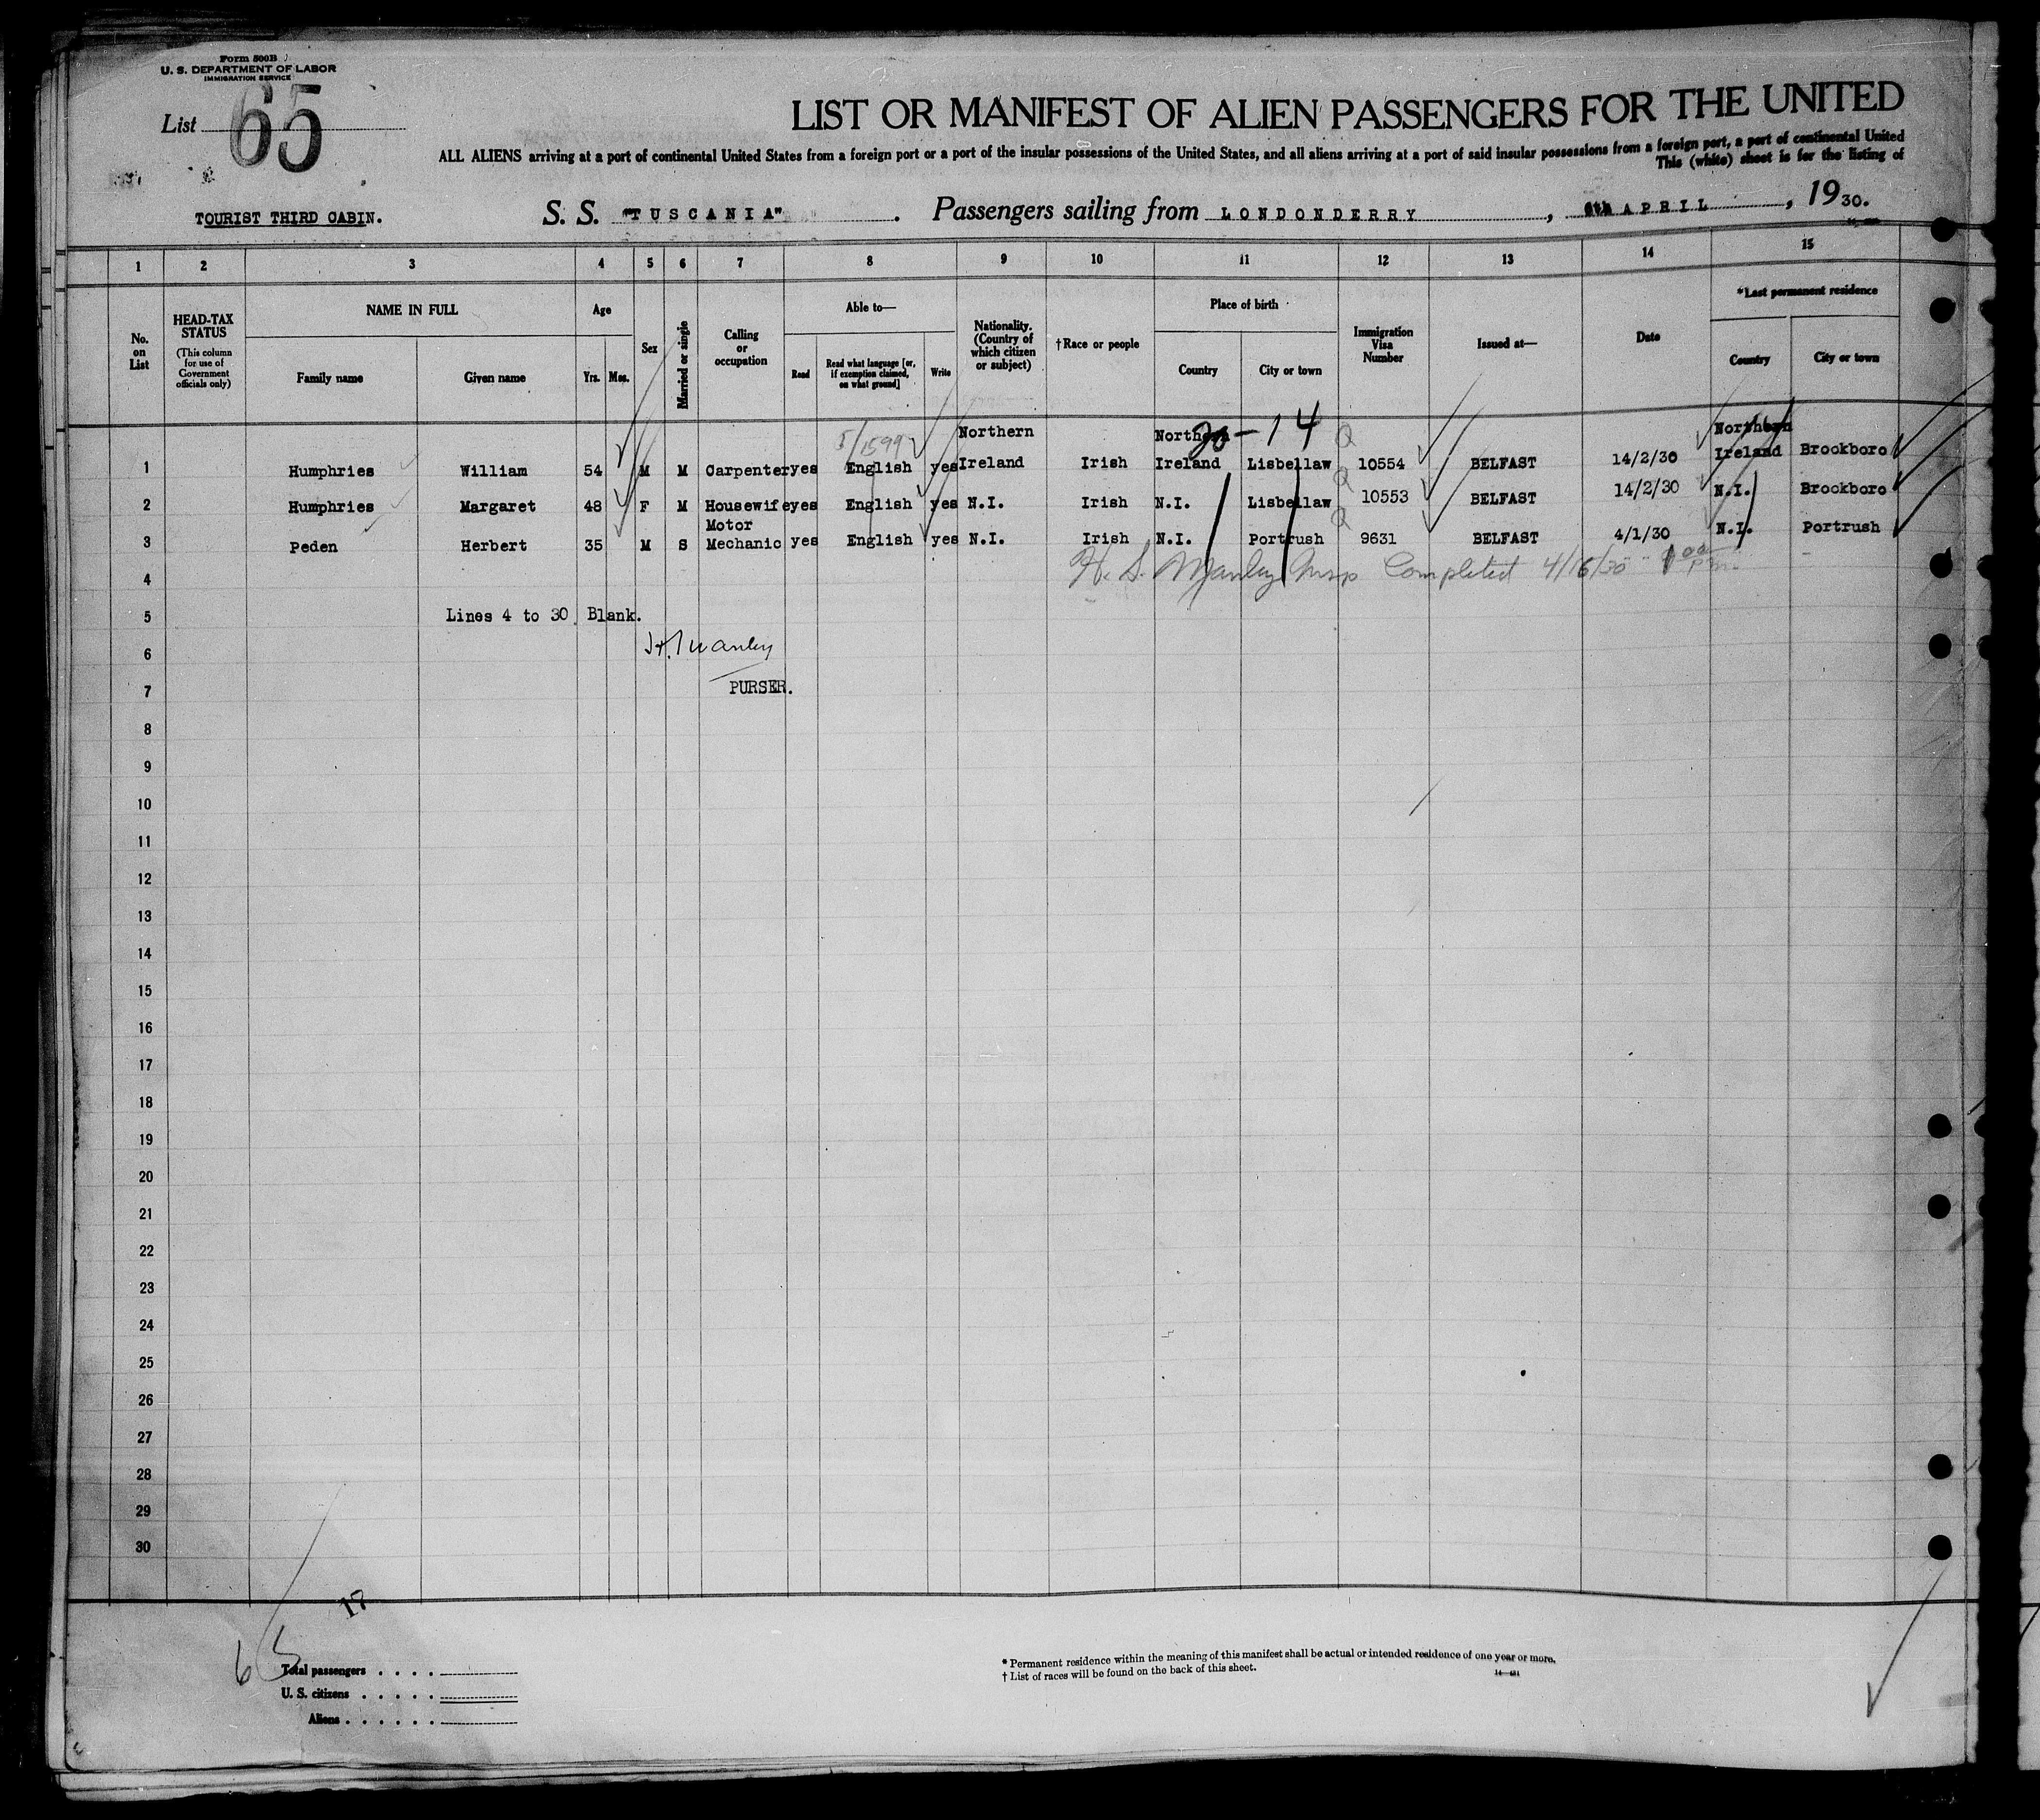 Form 500B
U. S. DEPARTMENT OF LABOR
IMMIGRATION SERVICE
List 65
LIST OR MANIFEST OF ALIEN PASSENGERS FOR THE UNITED
ALL ALIENS arriving at a port of continental United States from a foreign port or a port of the insular possessions of the United States, and all aliens arriving at a port of said insular possessions from a foreign port, a port of continental United
This (white) sheet is for the listing of
TOURIST THIRD CABIN. S. S. "TUSCANIA" . Passengers sailing from LONDONDERRY , 6th APRIL , 1930.
1 2 3 4 5 6 7 8 9 10 11 12 13 14 15
No. on List
HEAD-TAX STATUS
(This column for use of Government officials only)
NAME IN FULL
Family name Given name
Age
Yrs. Mos.
Sex
Married or single
Calling or occupation
Able to—
Read Read what language [or, if exemption claimed, on what ground] Write
Nationality. (Country of which citizen or subject)
†Race or people
Place of birth
Country City or town
Immigration Visa Number
Issued at—
Date
*Last permanent residence
Country City or town
20-14
1 Humphries William 54 M M Carpenter yes English yes Northern Ireland Irish Northern Ireland Lisbellaw 10554 BELFAST 14/2/30 Northern Ireland Brookboro
2 Humphries Margaret 48 F M Housewife yes English yes N.I. Irish N.I. Lisbellaw 10553 BELFAST 14/2/30 N.I. Brookboro
3 Peden Herbert 35 M S Motor Mechanic yes English yes N.I. Irish N.I. Portrush 9631 BELFAST 4/1/30 N.I. Portrush
4 H. S. Manley Insp Completed 4/16/30
5 Lines 4 to 30 Blank.
6
7 PURSER.
8
9
10
11
12
13
14
15
16
17
18
19
20
21
22
23
24
25
26
27
28
29
30
17
65
Total passengers
U. S. citizens
Aliens
* Permanent residence within the meaning of this manifest shall be actual or intended residence of one year or more.
† List of races will be found on the back of this sheet.